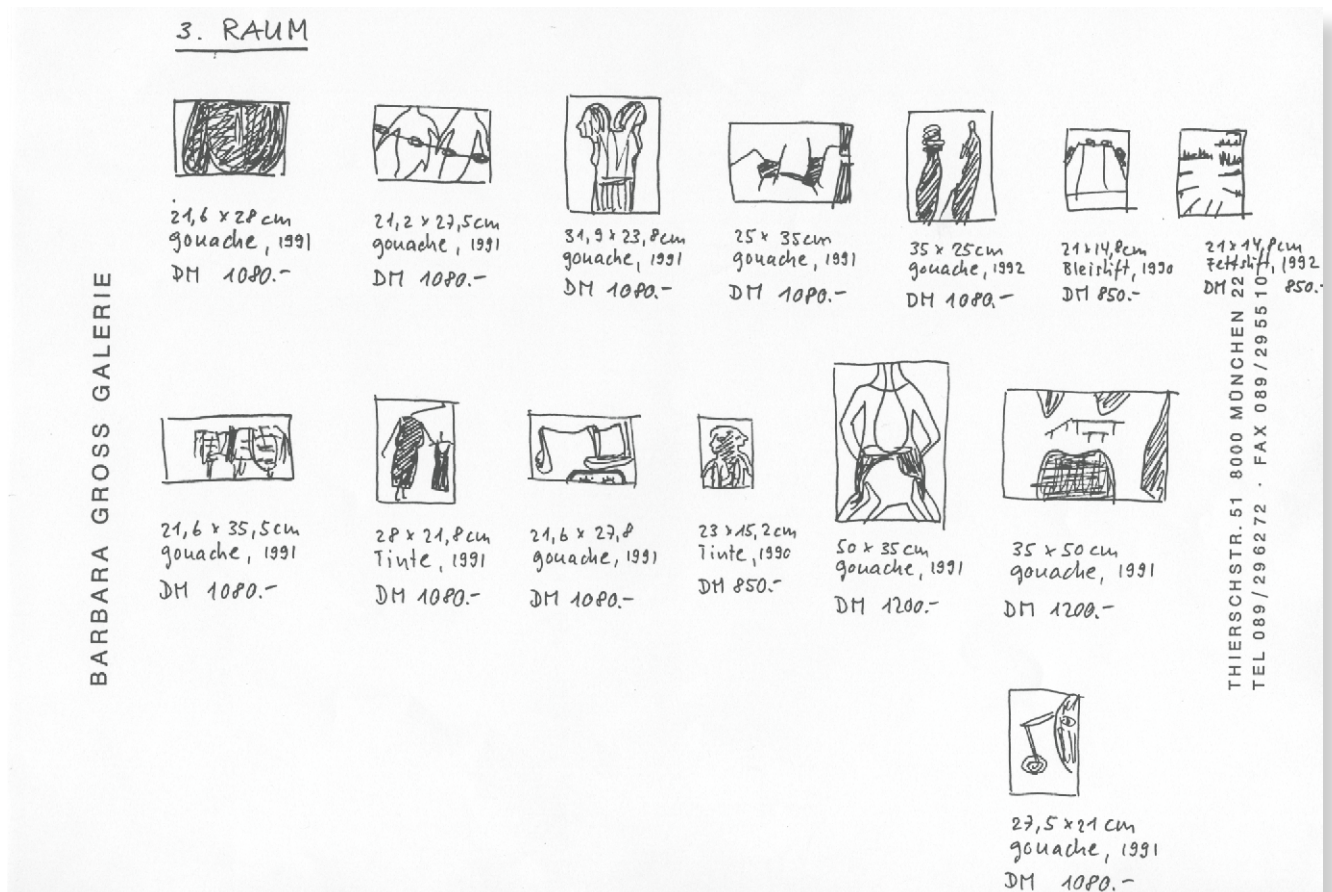 3. RAUM
21,6 x 28 cm
gouache, 1991
DM 1080.-
21,2 x 27,5cm
gouache, 1991
DM 1080.-
31,9 x 23,8cm
gouache, 1991
DM 1080.-
25 x 35cm
gouache, 1991
DM 1080.-
35 x 25cm
gouache, 1992
DM 1080.-
21x14,8cm
Bleistift, 1990
DM 850.-
21x14,8cm
Fettstift, 1992
DM 850.-
21,6 x 35,5cm
gouache, 1991
DM 1080.-
28 x 21,8cm
Tinte, 1991
DM 1080.-
21,6 x 27,8
gouache, 1991
DM 1080.-
23 x 15,2cm
Tinte, 1990
DM 850.-
50 x 35cm
gouache, 1991
DM 1200.-
35 x 50cm
gouache, 1991
DM 1200.-
27,5x21cm
gouache, 1991
DM 1080.-
BARBARA GROSS GALERIE
THIERSCHSTR. 51 8000 MÜNCHEN 22
TEL 089/296272 · FAX 089/295510